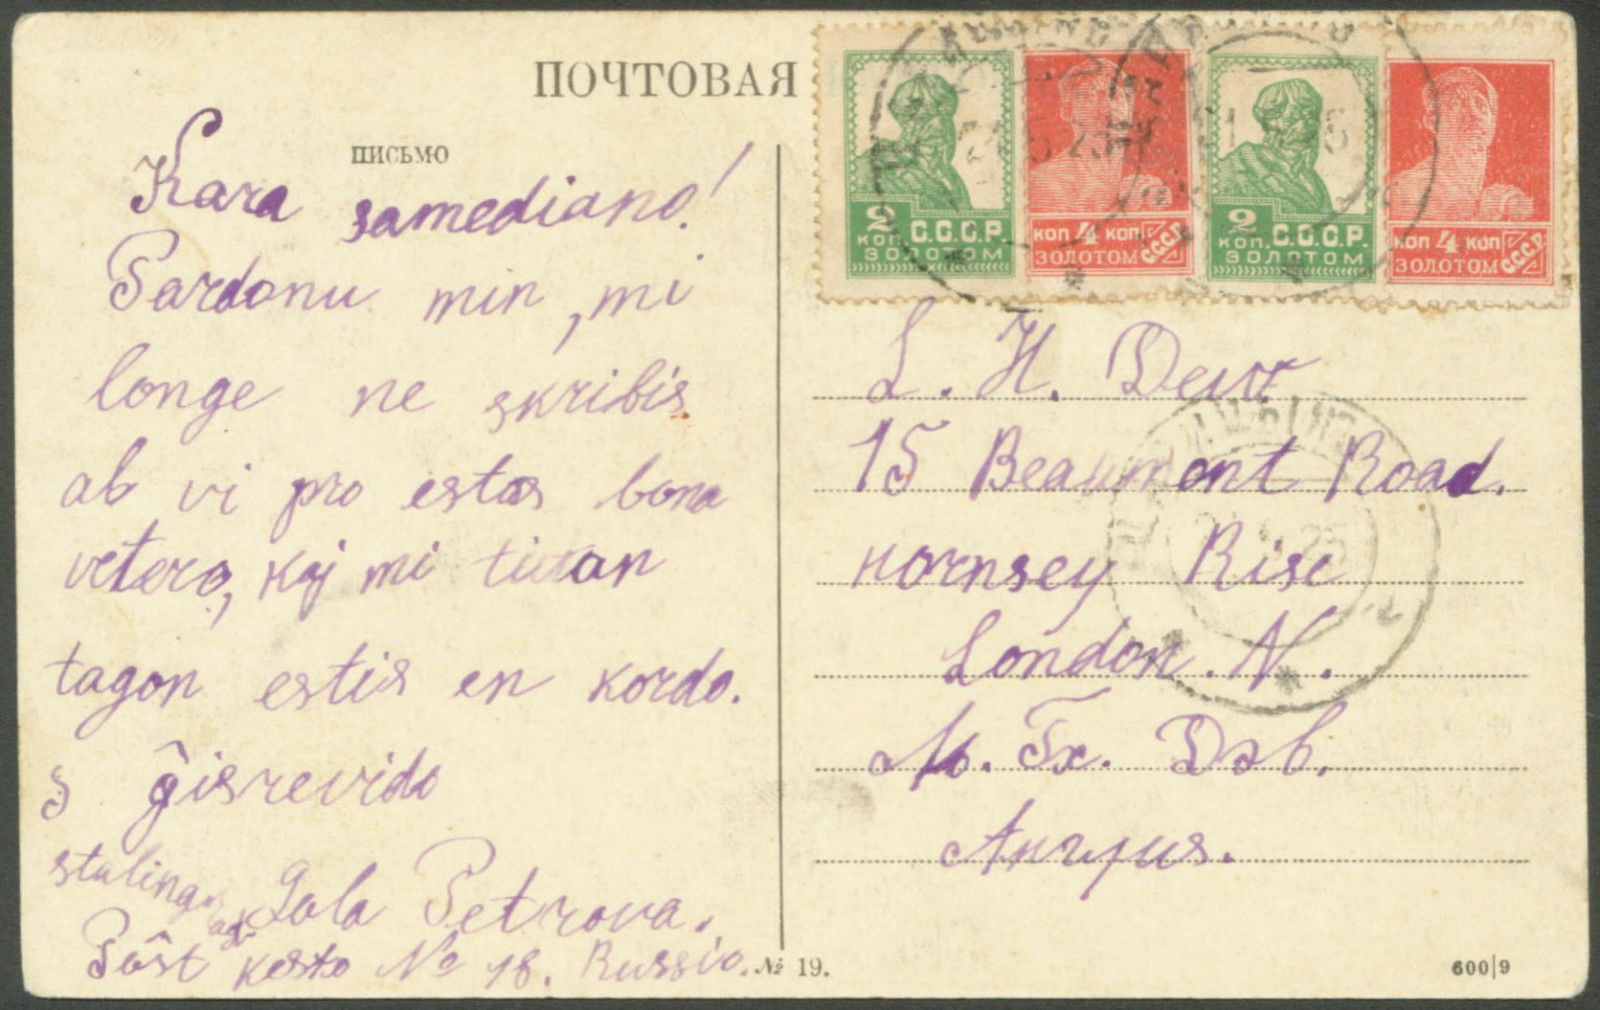 ПОЧТОВАЯ
ПИСЬМО
Kara samediano!
Pardonu min, mi
longe ne skribis
al vi pro estas bona
vetero, kaj mi tutan
tagon estis en kordo.
Ĝisrevido
Stalingrad
Lola Petrova.
Pôst kesto № 18. Russio.
2 КОП. С.С.С.Р. ЗОЛОТОМ
КОП 4 КОП ЗОЛОТОМ СССР
2 КОП. С.С.С.Р. ЗОЛОТОМ
КОП 4 КОП ЗОЛОТОМ СССР
L. H. Dew
15 Beaumont Road.
Hornsey Rise
London. N.
Л. Гх. Дэв.
Англия.
№ 19.
600|9